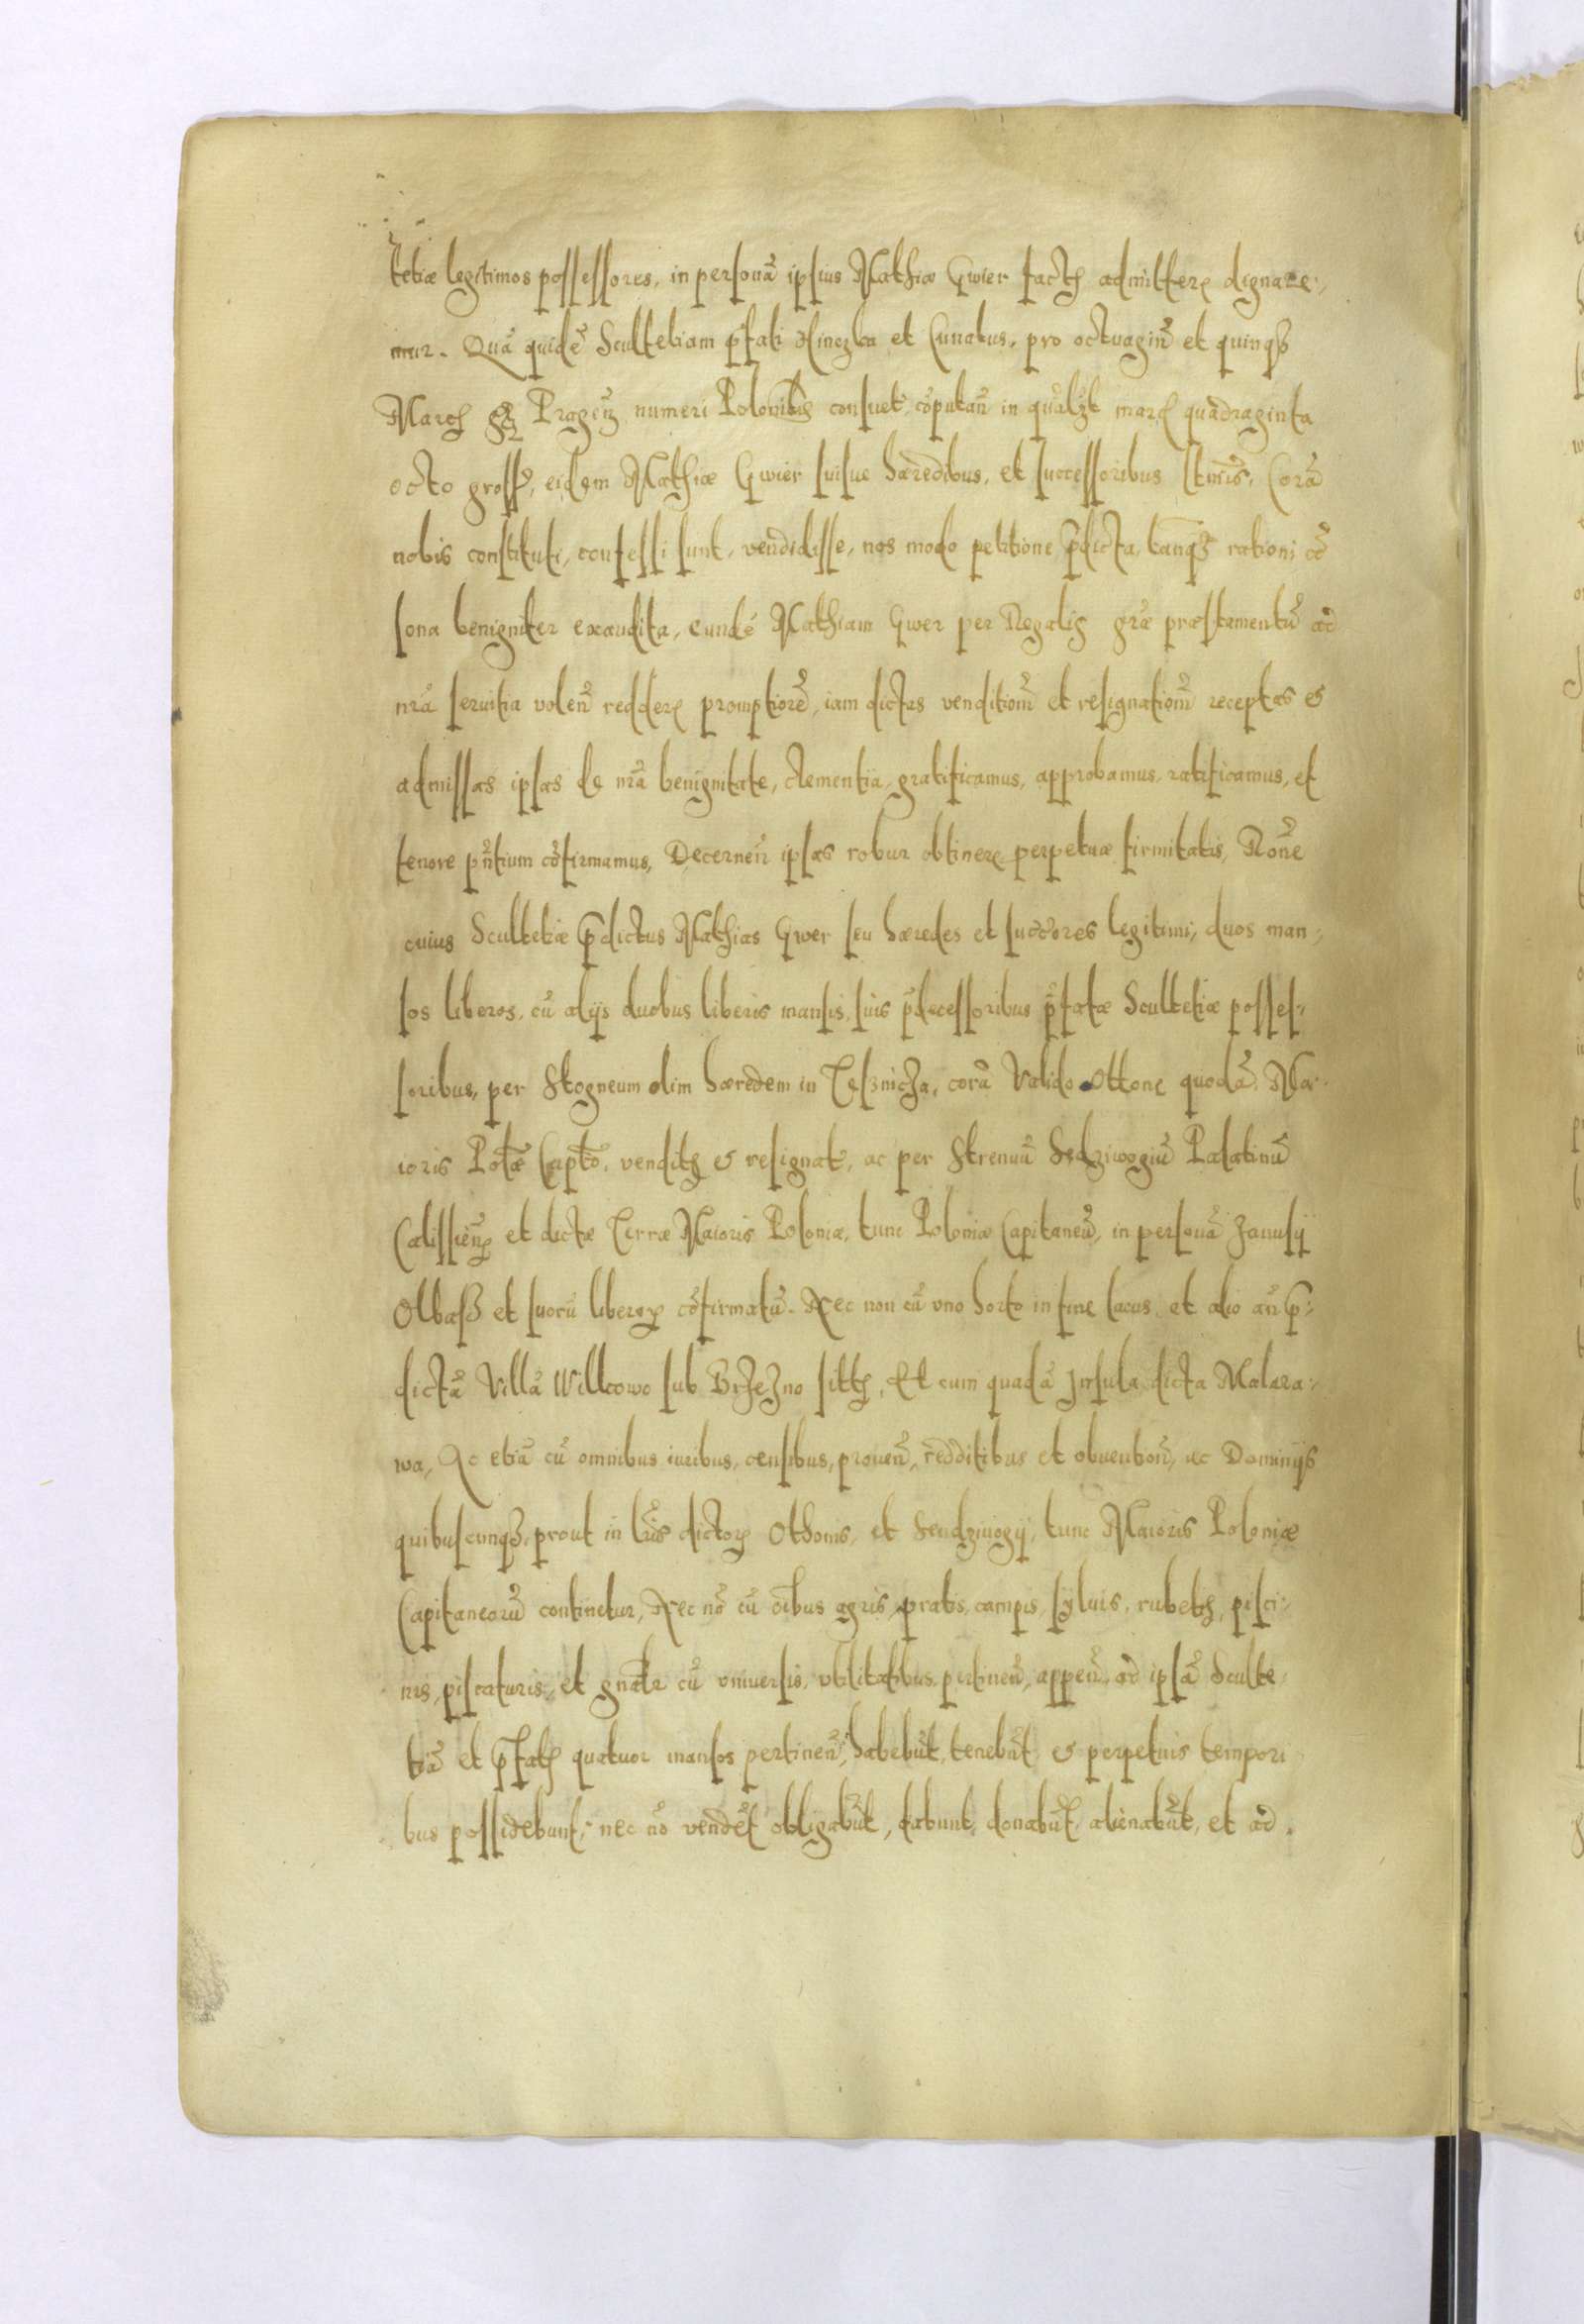 tetiæ legitimos possessores, in personã ipsius Mathiæ Gwier factã admittere dignare⸗
mur. Quã quidẽ Scultetiam pfati Mineżka et Cunatus, pro octuagiñ et quinq₃
Marcꝭ gr Pragẽn numeri Polonicalis consuet, cõputañ in qualꝫt marcꝭ quadraginta
octo gross, eidem Mathiæ Gwier suisue hæredibus, et successoribus ltmis, Corã
nobis constituti, confessi sunt, vendidisse, nos modo petitione pdicta, tanq₃ rationi cõ
sona benigniter exaudita, eundẽ Mathiam Gwer per Regalis grã præstamentũ ad
nrã seruitia voleñ reddere promptiorẽ, iam dictas venditioñ et resignatioñ receptas &
admissas ipsas de nrã benignitate, clementia, gratificamus, approbamus, ratificamus, et
tenore pñtium cõfirmamus, Decerneñ ipsas robur obtinere perpetuæ firmitatis, Rõne
cuius Scultetiæ pdictus Mathias Gwer seu hæredes et succores legitimi, duos man⸗
sos liberos, cũ alijs duobus liberis mansis, suis pdecessoribus pfatæ Scultetiæ posses⸗
soribus, per Stogneum olim hæredem in Cesznicza, corã Valido Ottone quodã Ma⸗
ioris Polæ Capto, vendit & resignat, ac per Strenuũ Sedziwogiũ Palatinũ
Calissieñ et dictæ Terræ Maioris Poloniæ, tunc Poloniæ Capitaneũ, in personã Janusij
Olbasz et suorũ liberoꝝ cõfirmatũ. Nec non cũ vno horto in fine lacus, et alio añ p⸗
dictã Villã Willcowo sub Brzezno sitꝭ, Et cum quadã Insula dicta Malara⸗
wa, Ac etiã cũ omnibus iuribus, censibus, proueñ, redditibus et obuentioñ, ac Dominijs
quibuscunq₃, prout in lris dictoꝝ Othonis, et Sendziuogij, tunc Maioris Poloniæ
Capitaneorũ continetur, Nec nõ cũ oĩbus agris, pratis, campis, syluis, rubetꝭ, pisci⸗
nis, piscaturis, et gnalr cũ vniuersis, vtilitatibus, pertineñ, appeñ, ad ipsã Sculte⸗
tiã et pfatꝭ quatuor mansos pertineñ, habebũt, tenebũt, & perpetuis tempori
bus possidebunt, nec nõ vendẽt obligabũt, dabunt, donabũt, alienabũt, et ad